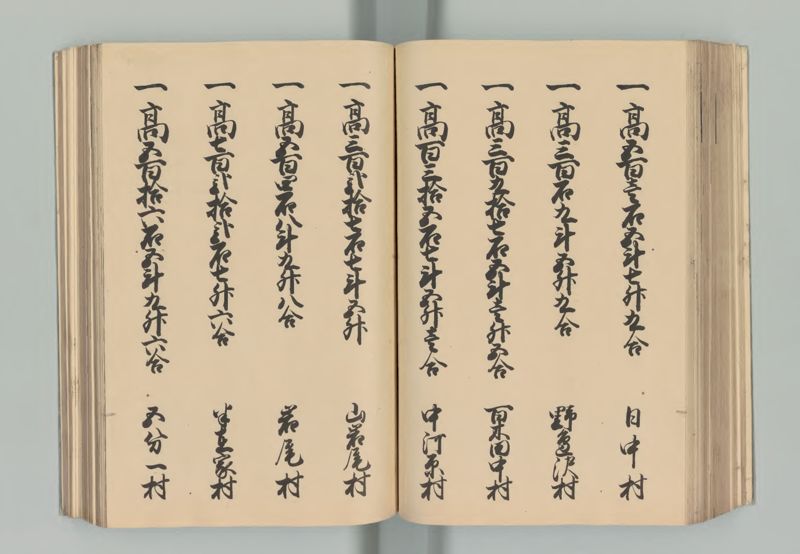 一高五百壱石五斗七升九合 日中村
一高三百石九斗五升九合 野鳥沢村
一高三百九拾七石五斗壱升五合 百木田中村
一高百三拾五石七斗五升壱合 中河原村
一高三百弐拾七石七斗五升 山岩尾村
一高五百四石八斗九升八合 岩尾村
一高七百弐拾弐石七升六合 家村
一高五百拾六石五斗九升六合 五分一村